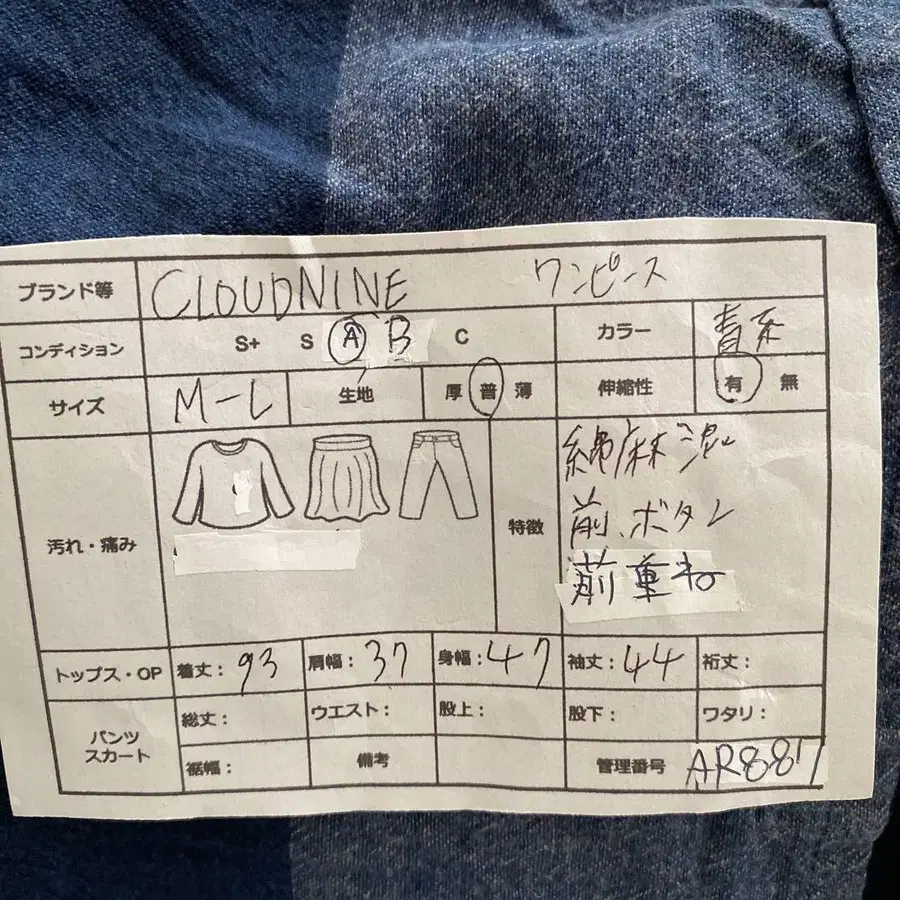 ブランド等 CLOUDNINE ワンピース
コンディション S+ S A B C カラー 青系
サイズ M-L 生地 厚 普 薄 伸縮性 有 無
汚れ・痛み 特徴 綿麻混
前、ボタン
前重ね
トップス・OP 着丈:93 肩幅:37 身幅:47 袖丈:44 裄丈:
パンツ スカート 総丈: ウエスト: 股上: 股下: ワタリ:
裾幅: 備考 管理番号 AR887